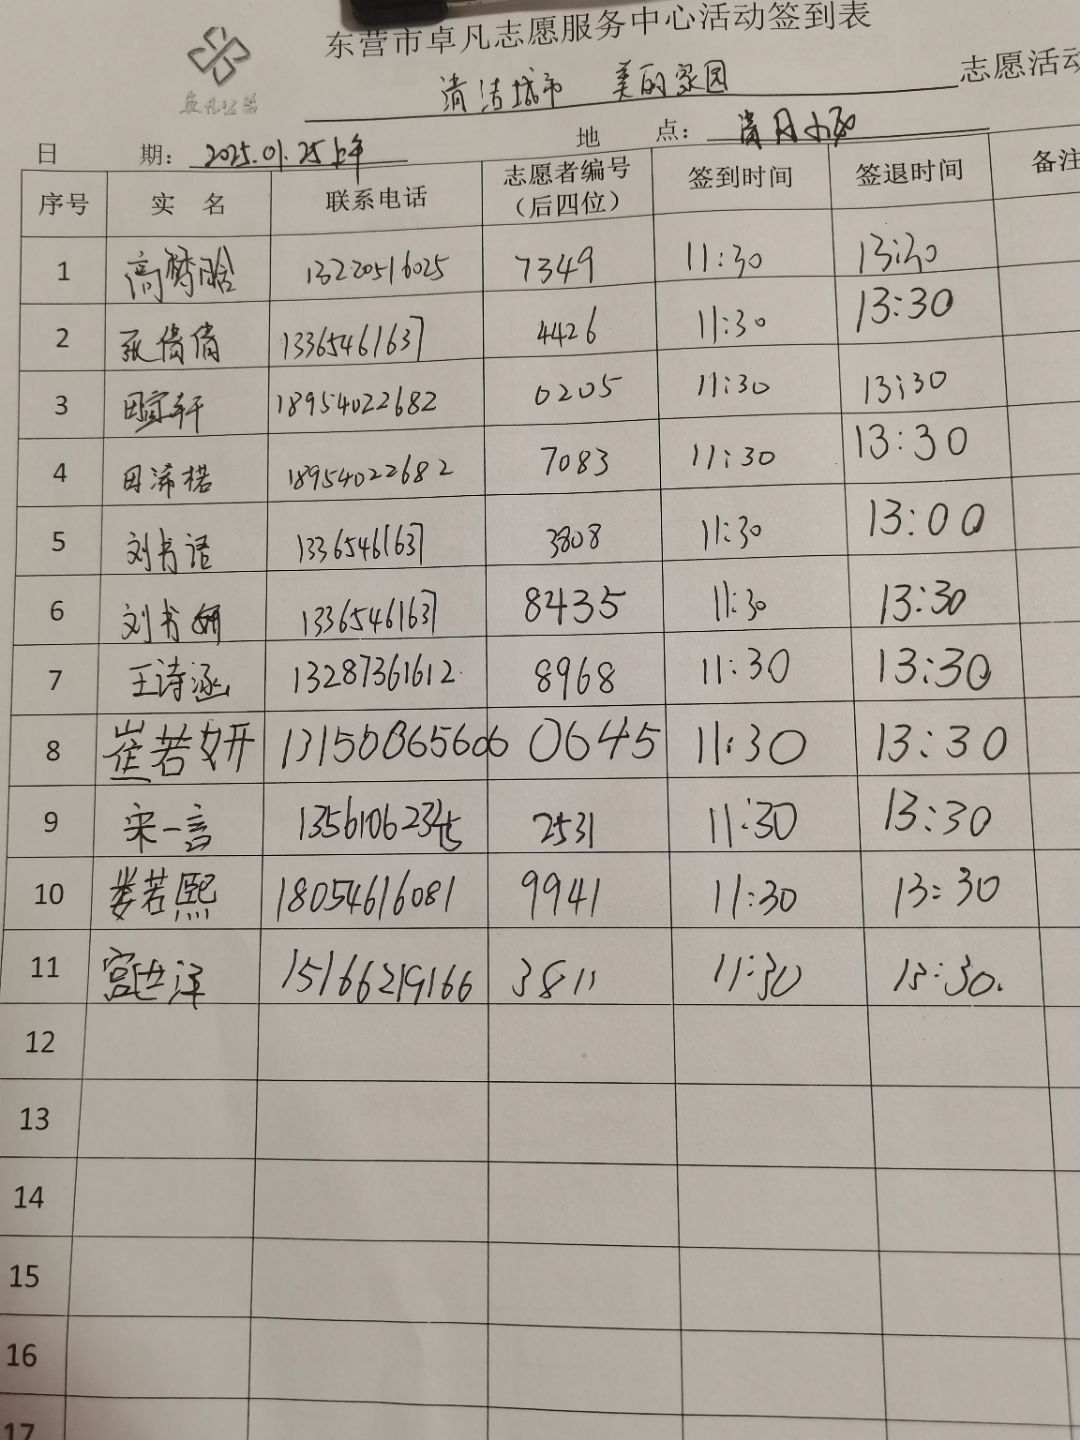 东营市卓凡志愿服务中心活动签到表
清洁城市 美丽家园 志愿活动
卓凡公益
日 期: 2025.01.25上午 地 点:
序号 实 名 联系电话 志愿者编号(后四位) 签到时间 签退时间 备注
1 高梦晗 13220516025 7349 11:30 13:30
2 张倩倩 13365461637 4426 11:30 13:30
3 田宸轩 18954022682 0205 11:30 13:30
4 田浠楉 18954022682 7083 11:30 13:30
5 刘书语 13365461637 3808 11:30 13:00
6 刘书妍 13365461637 8435 11:30 13:30
7 王诗涵 13287361612 8968 11:30 13:30
8 崔若妍 0645 11:30 13:30
9 宋一言 2531 11:30 13:30
10 娄若熙 18054616081 9941 11:30 13:30
11 宫世泽 15166219166 3811 11:30 13:30.
12
13
14
15
16
17